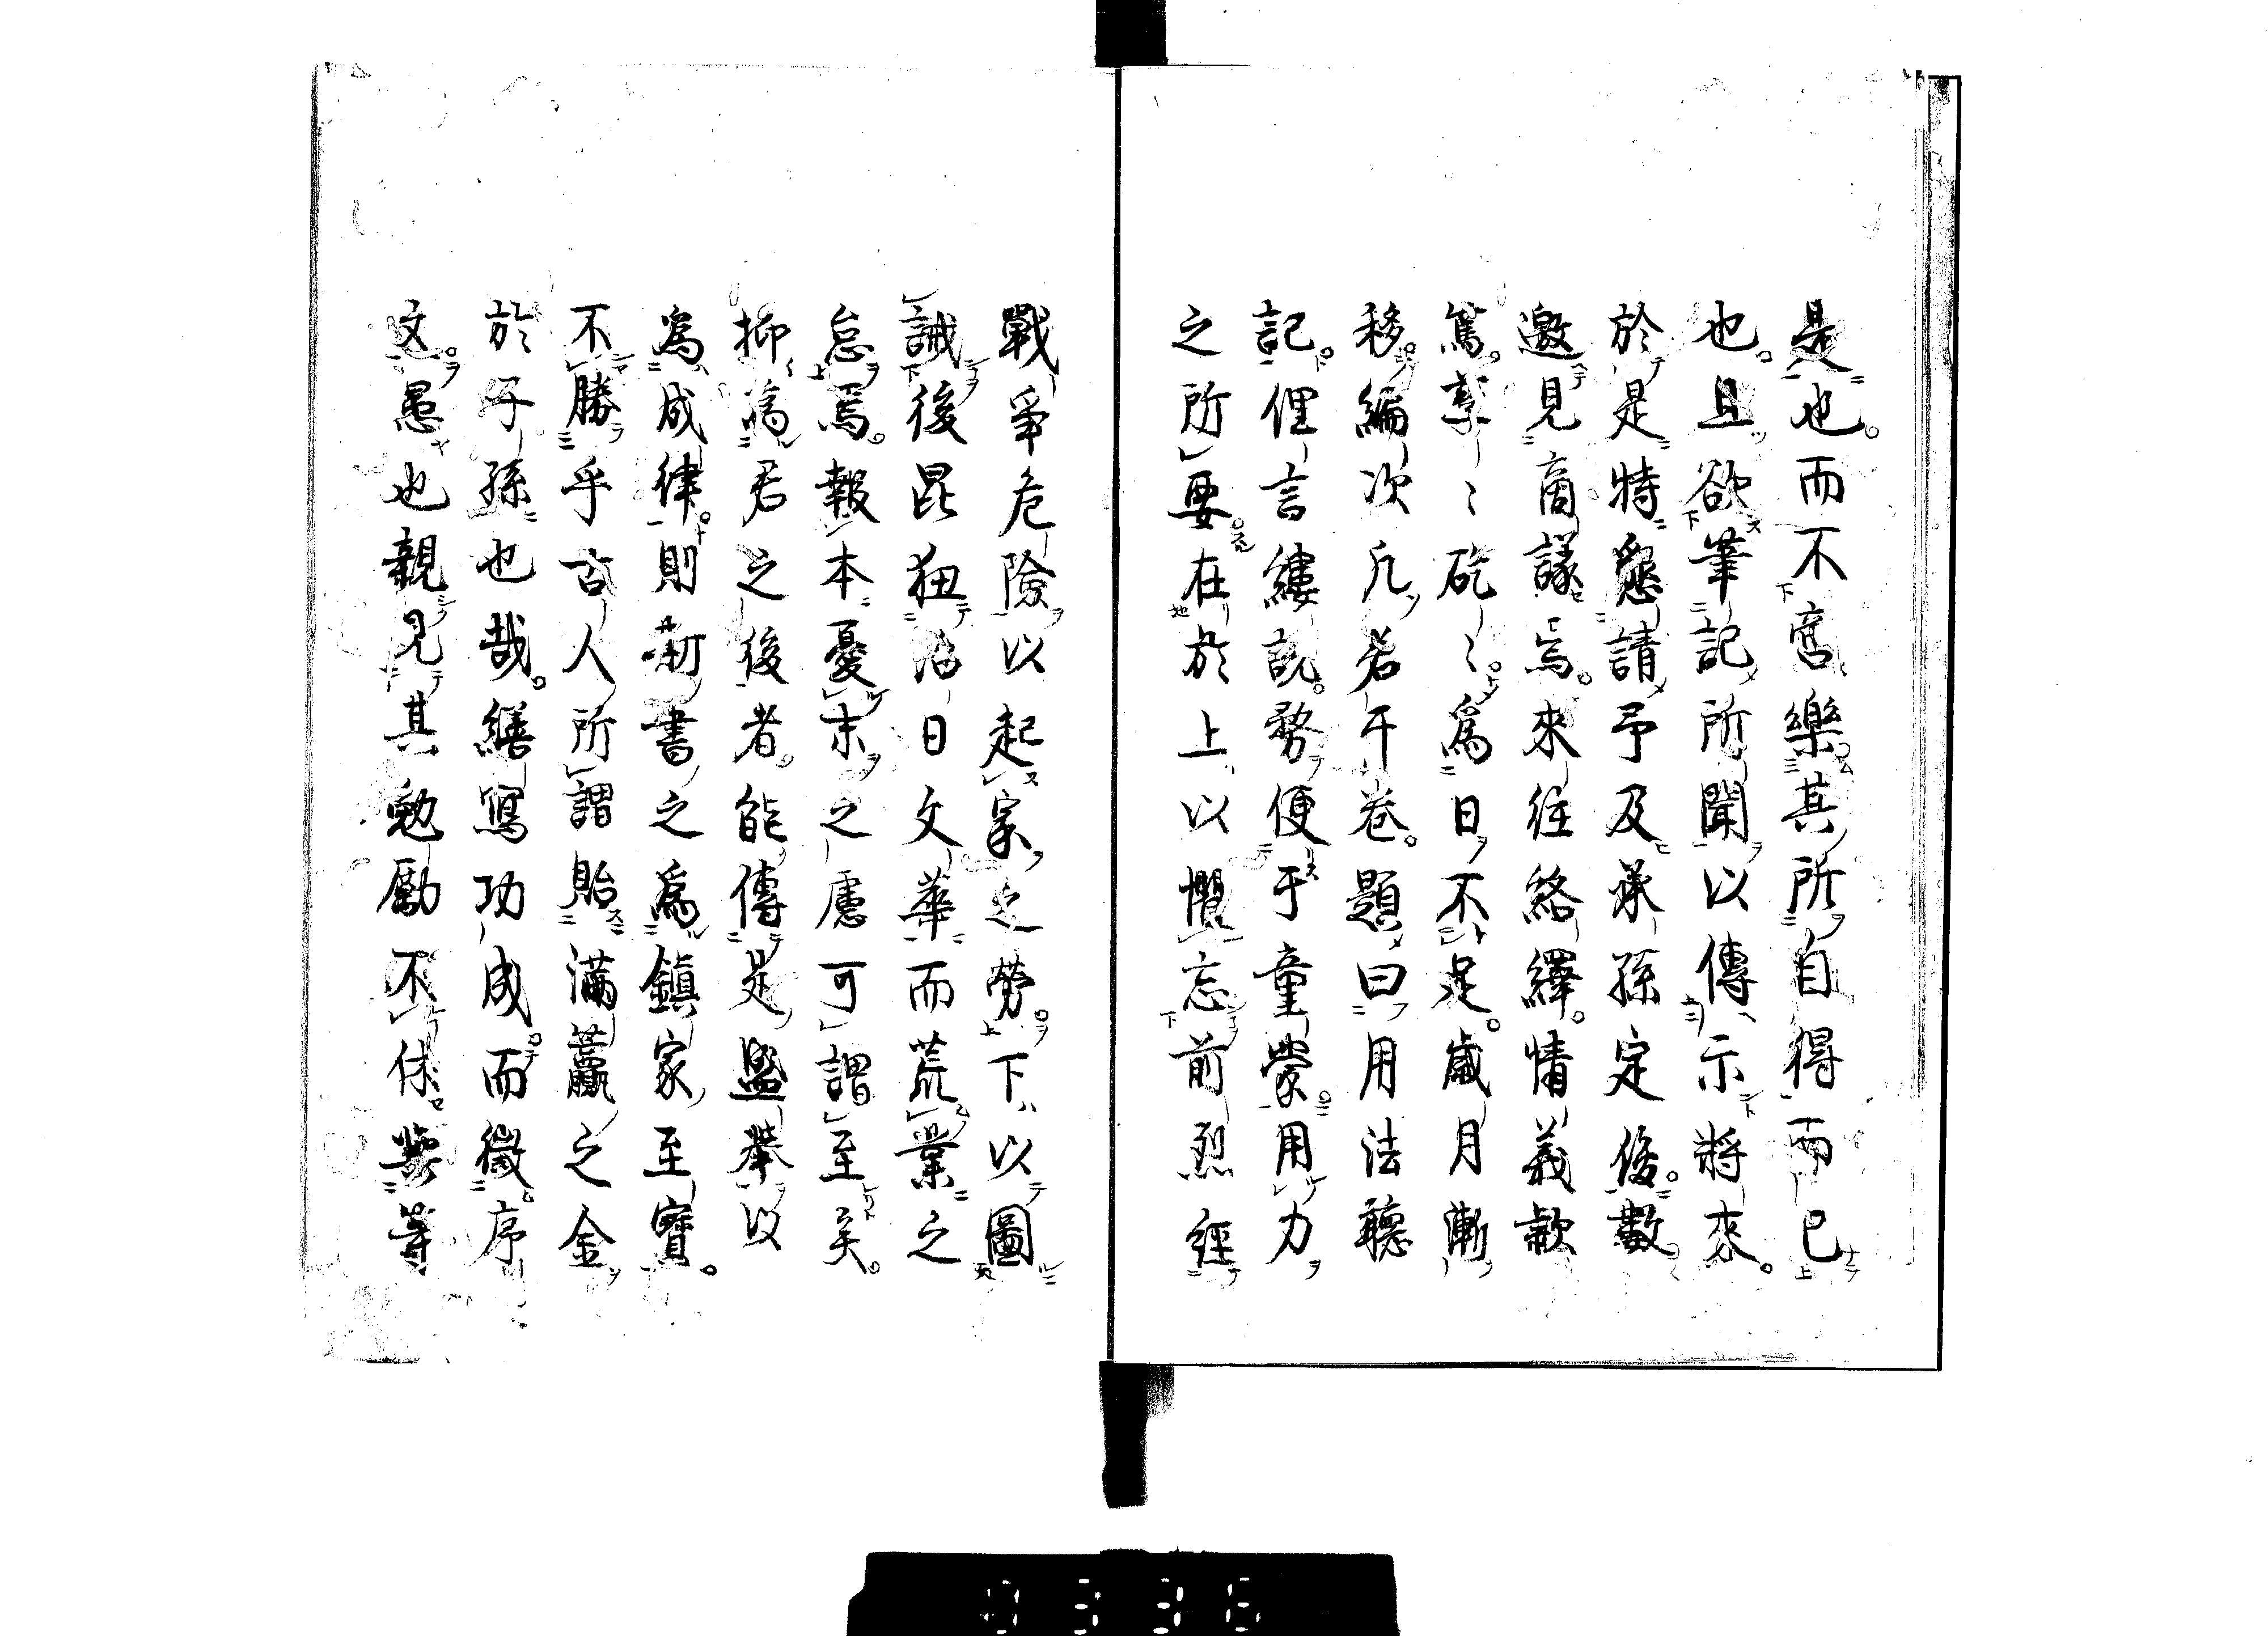 是也而不啻樂其所自得而已
也且欲筆記所聞以傳示將來
於是特懇請予及承孫定俊數
邀見商議焉來往絡繹情義歡
篤孳〻矻〻為日不足歲月漸
移編次凡若干卷題曰用法聽
記俚言縷説務便于童蒙用力
之所要在於上以懼忘前烈經
戰爭危險以起家之勞下以圖
誡後昆狃治日文華而荒業之
怠焉報本憂末之慮可謂至矣
抑為君之後者能傳是盤擧以
為成律則斯書之為鎮家至寶
不勝乎古人所謂貽滿籯之金
於子孫也哉繕寫功成而徵序
文愚也親見其勉勵不休業等